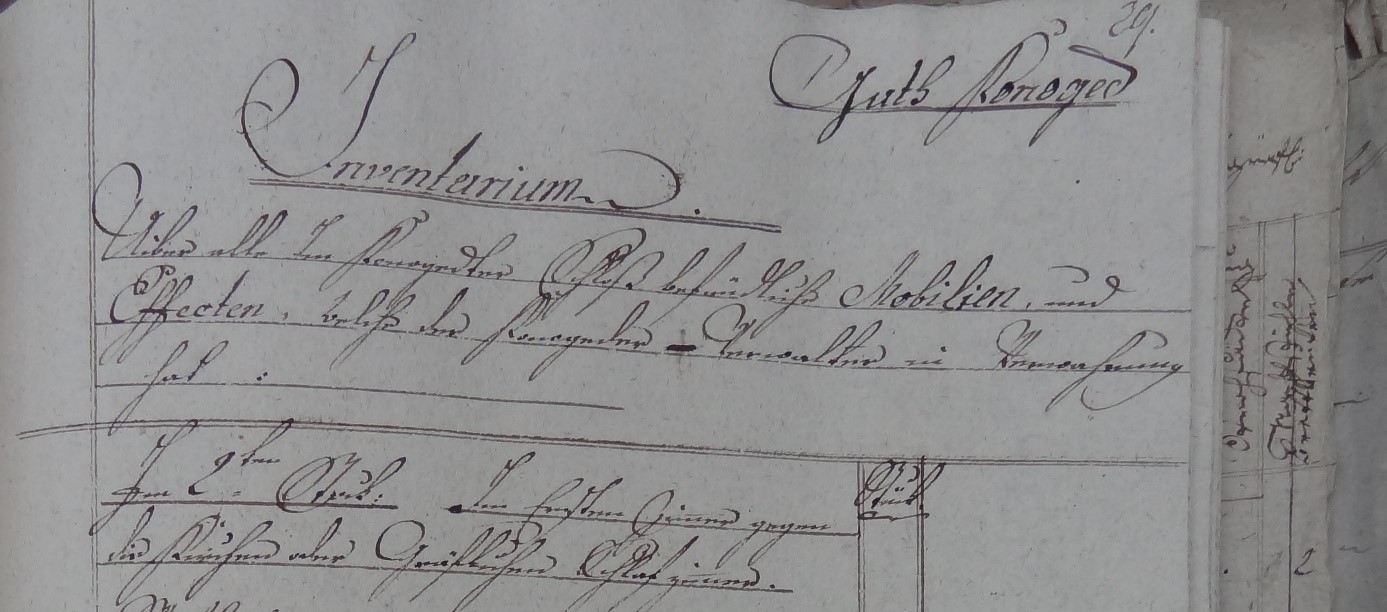 29.
Guth Konoged
Inventarium.
Uiber alle Im Konogedter Schloß befindliche Mobilien, und
Effecten, welche der Konogeder Verwalter in Verwahrung
hat :
Im 2ten Stok: Im Ersten Zimer gegen
die Kirchen oder Gräflichen Schlafzimer.
Stük.
2